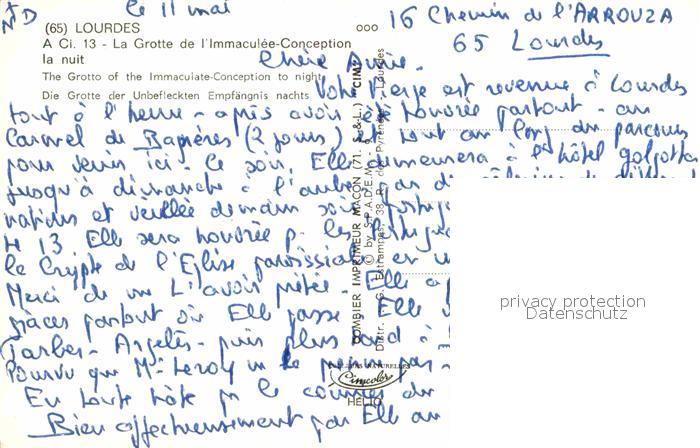 le 11 mai
ND
(65) LOURDES
A Ci. 13 - La Grotte de l'Immaculée-Conception
la nuit
The Grotto of the Immaculate-Conception to night
Die Grotte der Unbefleckten Empfängnis nachts
16 Chemin de l'ARROUZA
65 Lourdes
Chère Amie.
Votre Vierge est revenue à Lourdes
tout à l'heure - après avoir été honorée partout - au
Carmel de Bagnères (2 jours) et tout au long du parcours
pour venir ici. Ce soir, Elle demeurera à l'hôtel golgotha
jusqu'à dimanche à l'aube
et veillée demain soir
le 13 Elle sera honorée p. les
la Crypte de l'Eglise paroissiale et
Merci de me L'avoir prêtée. Elle a
grâces partout où Elle passe. Elle
Tarbes - Argelès - puis plus tard à
Pourvu que Mr Leroy ne le prenne pas
En toute hâte p. le courrier du
Bien affectueusement par Elle au
DOMBIER IMPRIMEUR MACON (71. S.&L.) "CIM"
© by S.P.A.D.E.M.
Distr. G. Estrampes, 38, R. des Pyrénées - Lourdes
COULEURS NATURELLES
Cimcolor
HELIO
privacy protection
Datenschutz